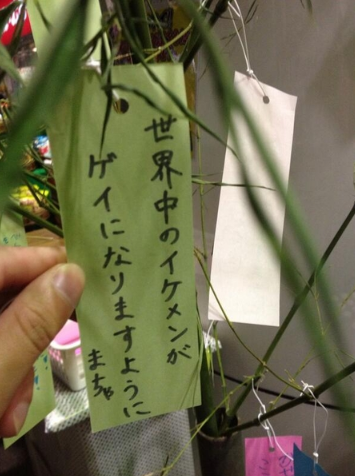 世界中のイケメンが
ゲイになりますように
まちゅ